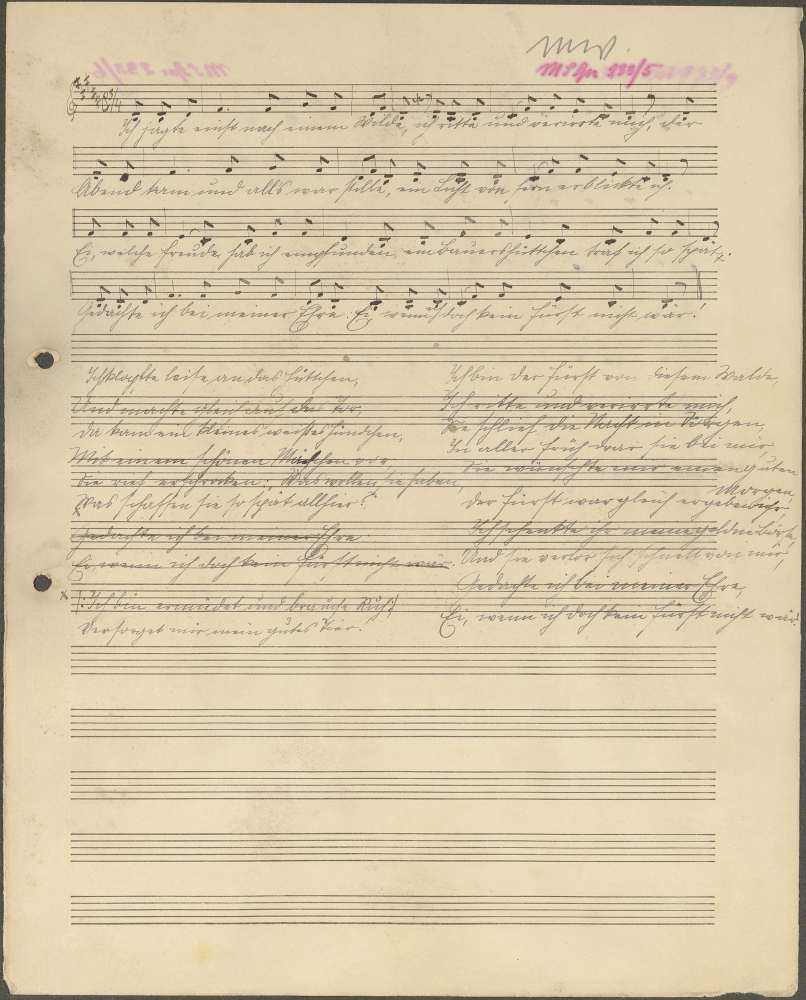 MW.
MS Gu 233/5
Ich jagte einst nach einem Wilde, ich ritte und verirrte mich, der
Abend kam und alls war stille, ein Licht von fern erblickte ich.
Ei, welche Freude hab ich empfunden, ein Bauershüttchen traf ich so spät,
Gedachte ich bei meiner Ehre: Ei, wenn ich doch kein Fürst nicht wär!
Ich klopfte leise an das Hüttchen,
Und machte gleich auf das Tor,
Da kam ein kleines weißes Hündchen,
Mit einem schönen Mädchen vor.
Sie rief erschrocken: Was wollen sie haben,
Was schaffen sie so spät allhier?
Gedachte ich bei meiner Ehre:
Ei, wenn ich doch kein Fürst nicht wär.
x |: Ich bin ermüdet und brauche Ruh :|
Versorget mir mein gutes Tier.
Ich bin der Fürst von diesem Walde,
Ich ritte und verirrte mich,
Sie schlief die Nacht in Sorgen,
In aller Früh war sie bei mir,
Sie wünschte mir einen guten
Morgen,
Der Fürst war gleich ergeben ihr.
Ich schenkte ihr meine goldne Börse,
Und sie verlor sich schnell von mir,
Gedachte ich bei meiner Ehre,
Ei, wenn ich doch kein Fürst nicht wär!